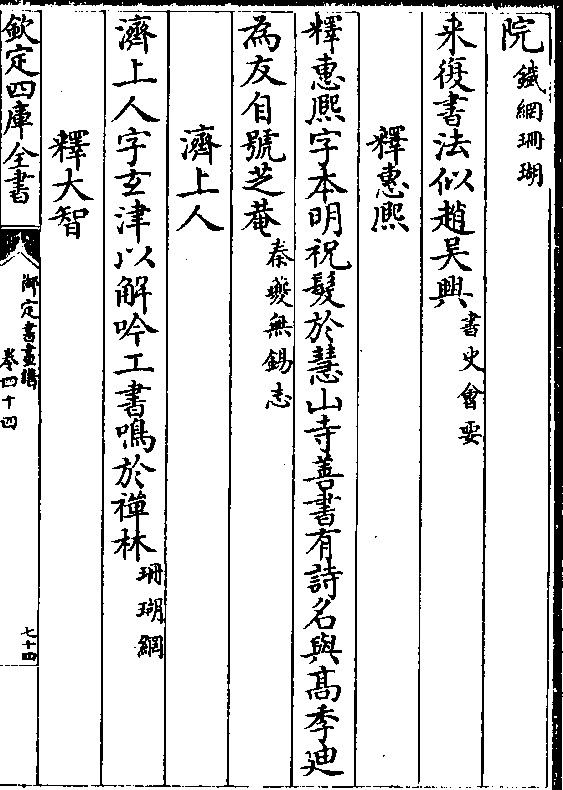 院鐵網珊瑚
来復書法似趙吳興書史會要
釋惠熈
釋惠熈字本明祝髮於慧山寺善書有詩名與髙季廸
為友自號芝菴秦夔無錫志
濟上人
濟上人字玄津以解吟工書鳴於禪林珊瑚網
釋大智
欽定四庫全書
御定書畫譜
卷四十四
七十四